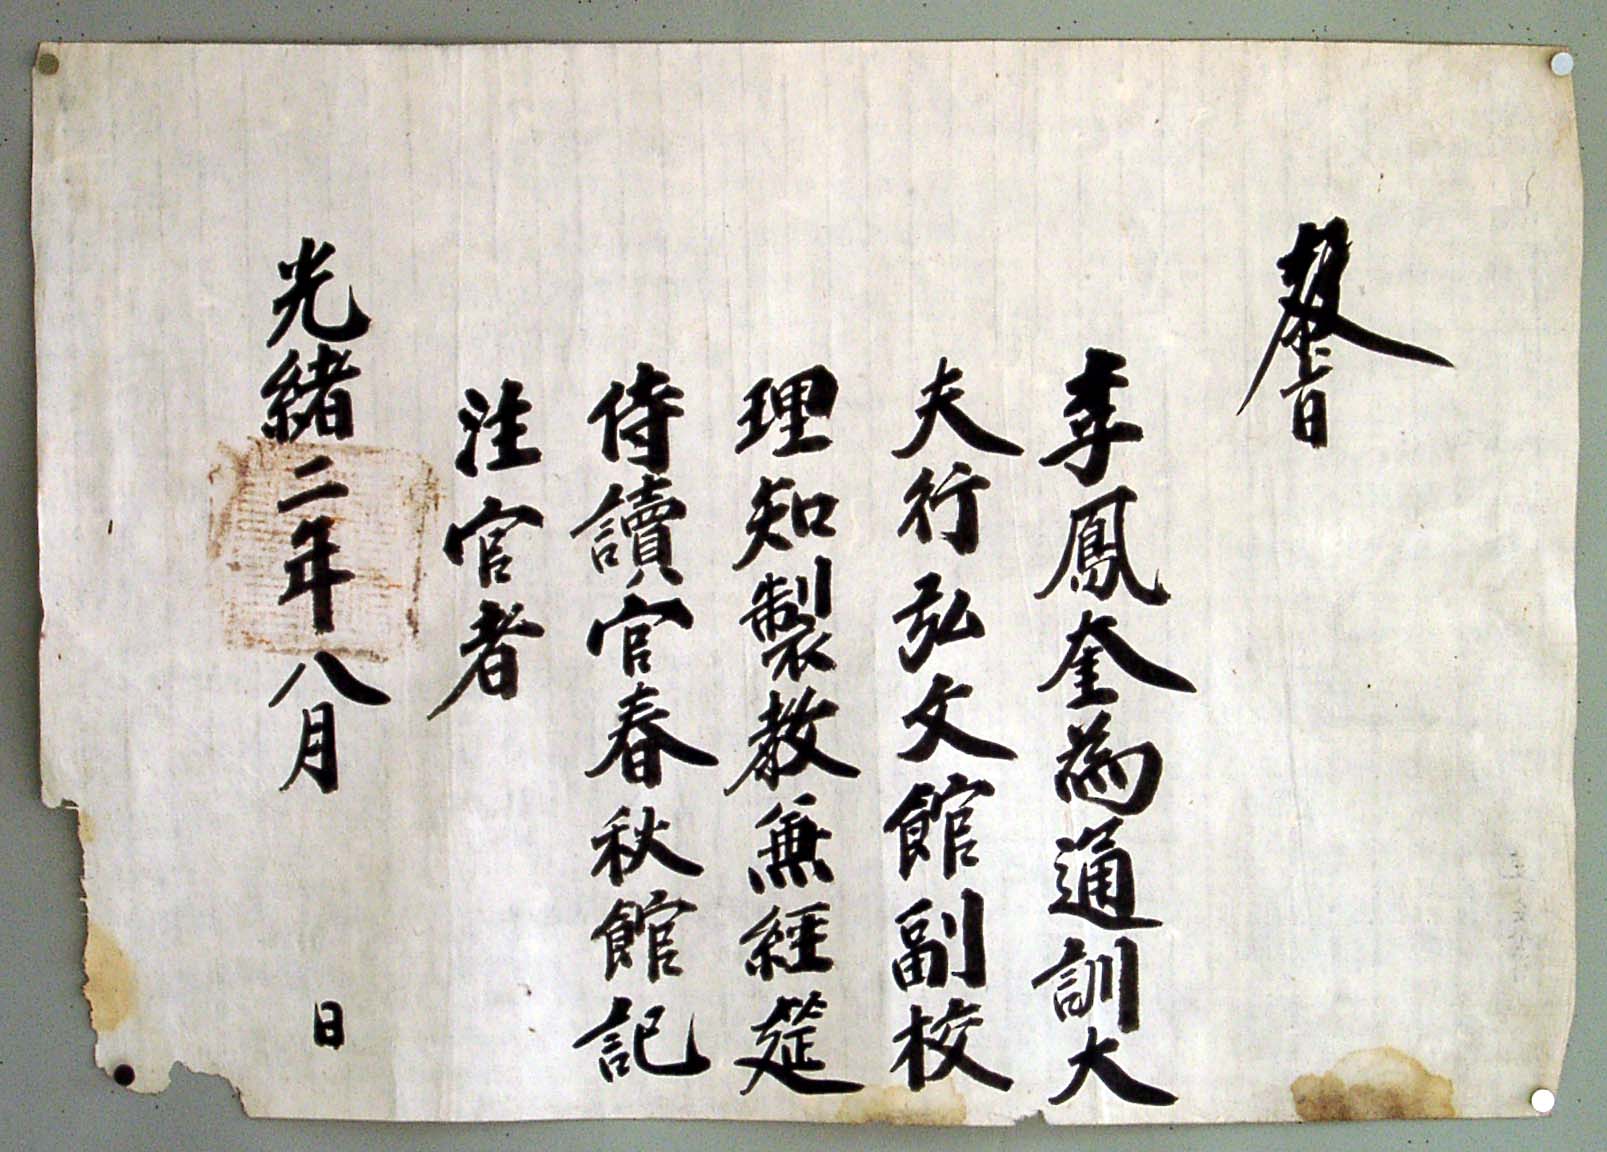 敎旨
李鳳奎為通訓大
夫行弘文館副校
理知製敎兼經筵
侍讀官春秋館記
注官者
光緖二年八月 日